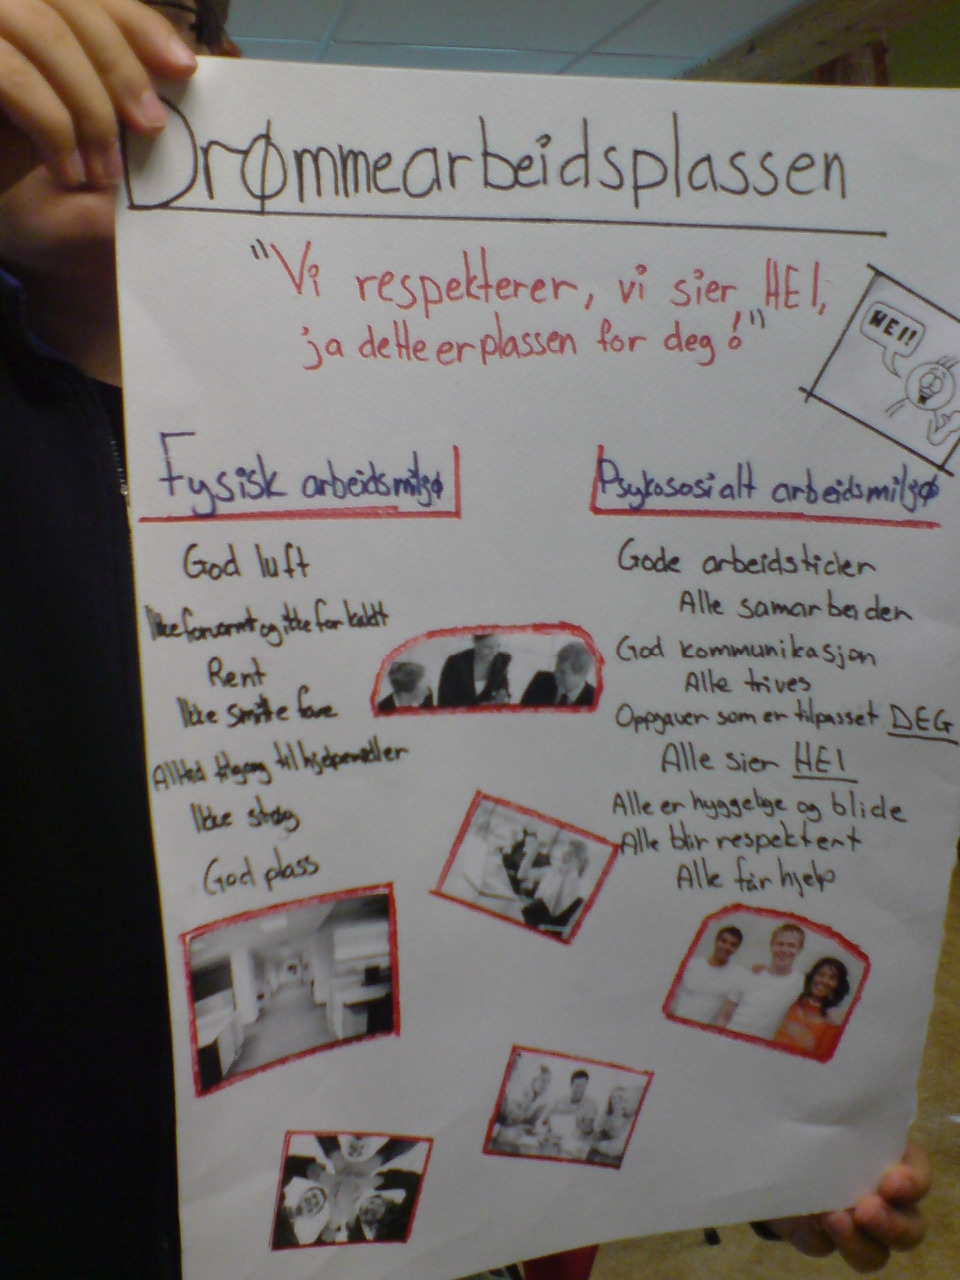 Drømmearbeidsplassen
"Vi respekterer, vi sier, HEI,
ja dette er plassen for deg!"
HEI!
Fysisk arbeidsmiljø
God luft
Ikke for varmt og ikke for kaldt
Rent
Ikke smitte fare
Alltid tilgang til hjelpemidler
Ikke støy
God plass
Psykososialt arbeidsmiljø
Gode arbeidstider
Alle samarbeider
God kommunikasjon
Alle trives
Oppgaver som er tilpasset DEG
Alle sier HEI
Alle er hyggelige og blide
Alle blir respektert
Alle får hjelp